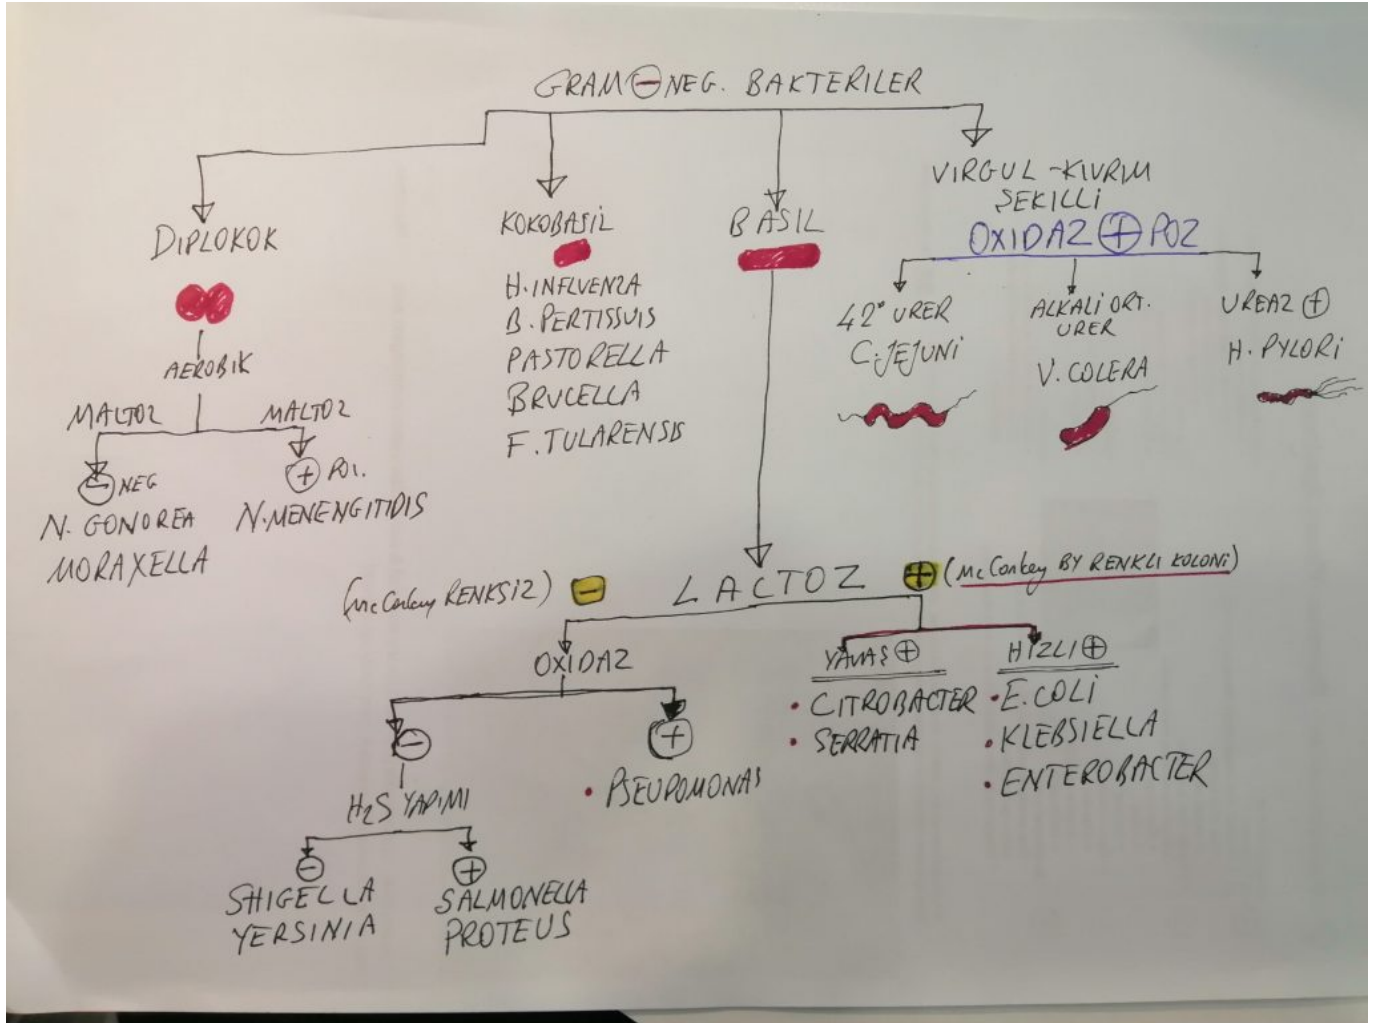 GRAM ⊖ NEG. BAKTERILER
DIPLOKOK
AEROBIK
MALTOZ
MALTOZ
⊖ NEG
N. GONOREA
MORAXELLA
⊕ POZ.
N. MENENGITIDIS
KOKOBASIL
H. INFLUENZA
B. PERTISSUIS
PASTORELLA
BRUCELLA
F. TULARENSIS
BASIL
VIRGUL-KIVRIM
ŞEKILLI
OXIDAZ ⊕ POZ
42° URER
C. JEJUNI
ALKALI ORT.
URER
V. COLERA
UREAZ ⊕
H. PYLORI
(McConkey RENKSIZ) − LACTOZ + (McConkey BY RENKLI KOLONI)
OXIDAZ
⊖
H2S YAPIMI
⊖
SHIGELLA
YERSINIA
⊕
SALMONELLA
PROTEUS
⊕
• PSEUDOMONAS
YAVAŞ ⊕
• CITROBACTER
• SERRATIA
HIZLI ⊕
• E. COLİ
• KLEBSIELLA
• ENTEROBACTER